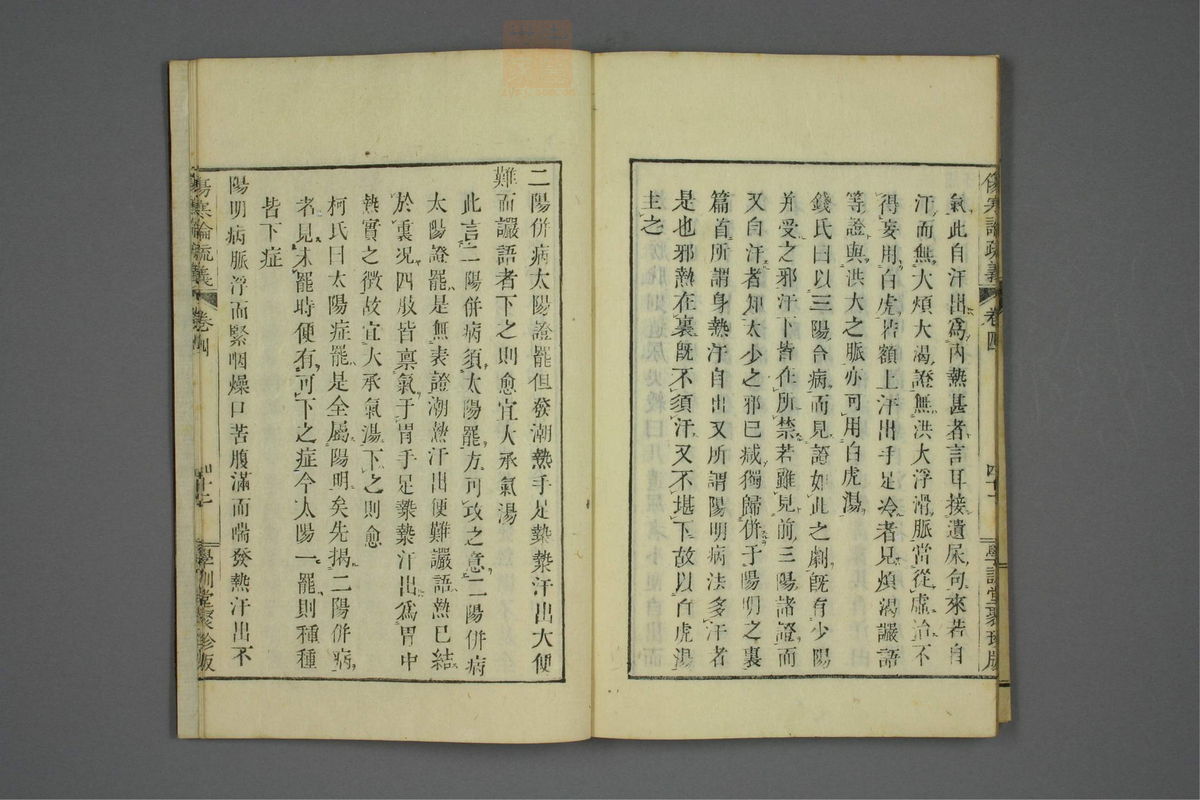 氣此自汗出爲內熱甚者言耳接遺尿句來若自
汗而無大煩大渴證無洪大浮滑脈當從虛治不
得妄用白虎若額上汗出手足冷者見煩渴讝語
等證與洪大之脈亦可用白虎湯
錢氏曰以三陽合病而見證如此之劇旣有少陽
幷受之邪汗下皆在所禁若雖見前三陽諸證而
又自汗者知太少之邪已減獨歸併于陽明之裏
篇首所謂身熱汗自出又所謂陽明病法多汗者
是也邪熱在裏旣不須汗又不堪下故以白虎湯
主之
傷寒論疏義 卷四 四十一 學訓堂聚珍版
二陽併病太陽證罷但發潮熱手足漐漐汗出大便
難而讝語者下之則愈宜大承氣湯
此言二陽併病須太陽罷方可攻之意二陽併病
太陽證罷是無表證潮熱汗出便難讝語熱已結
於裏況四肢皆稟氣于胃手足漐漐汗出爲胃中
熱實之徵故宜大承氣湯下之則愈
柯氏曰太陽症罷是全屬陽明矣先揭二陽併病
者見未罷時便有可下之症今太陽一罷則種種
皆下症
陽明病脈浮而緊咽燥口苦腹滿而喘發熱汗出不
傷寒論疏義 卷四 四十二 學訓堂聚珍版